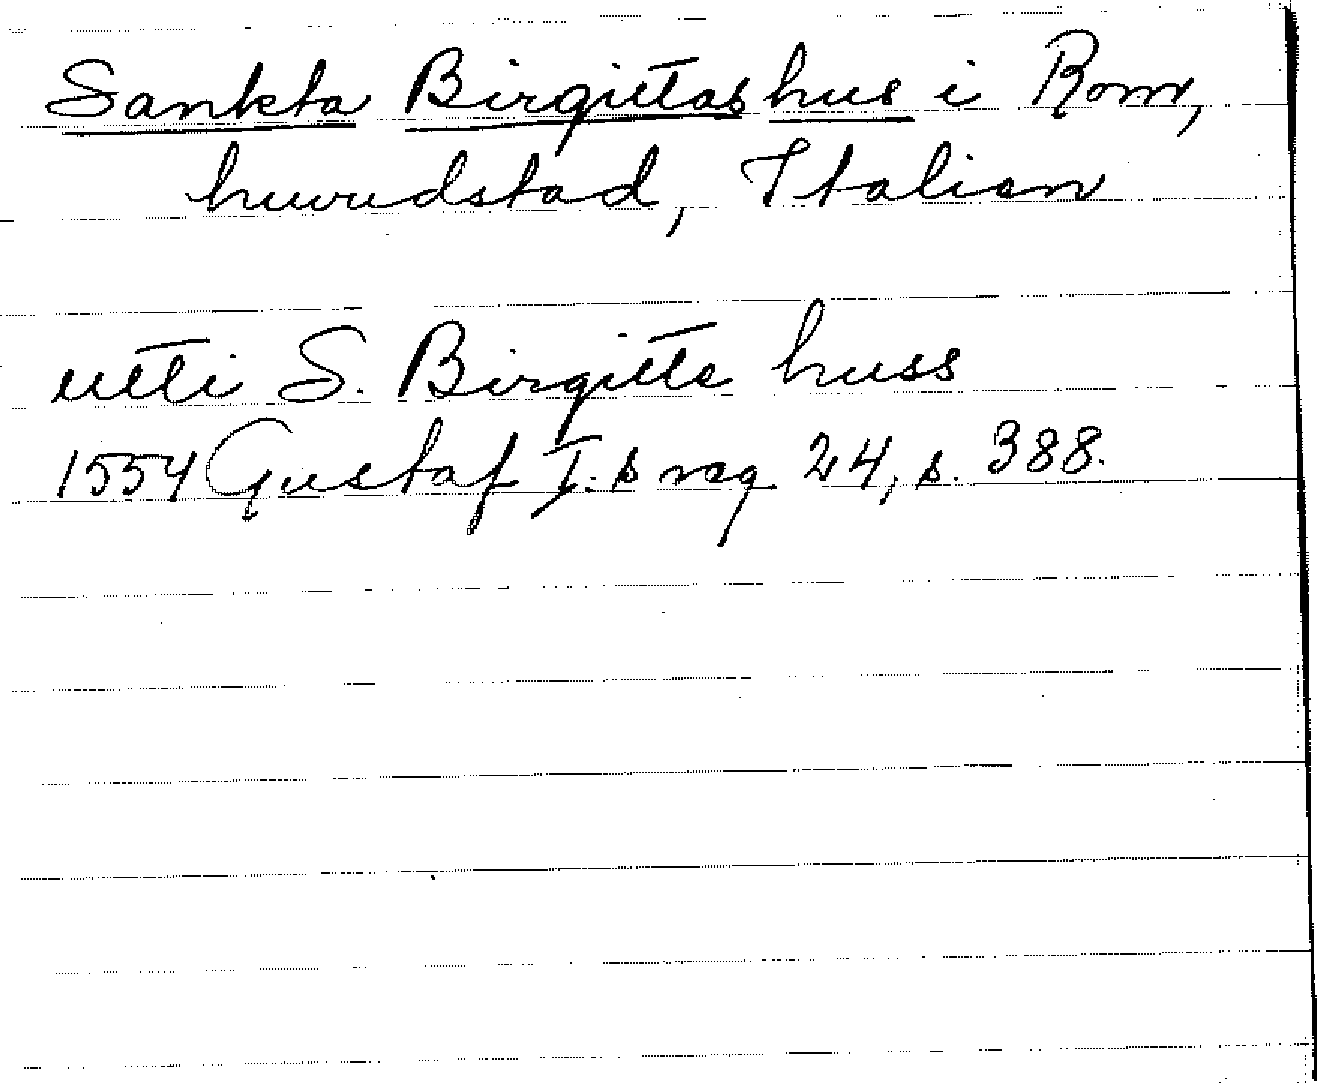 Sankta Birgittas hus i Rom,
huvudstad, Italien
utti S. Birgitte huss
1554 Gustaf I:s reg 24, s. 388.